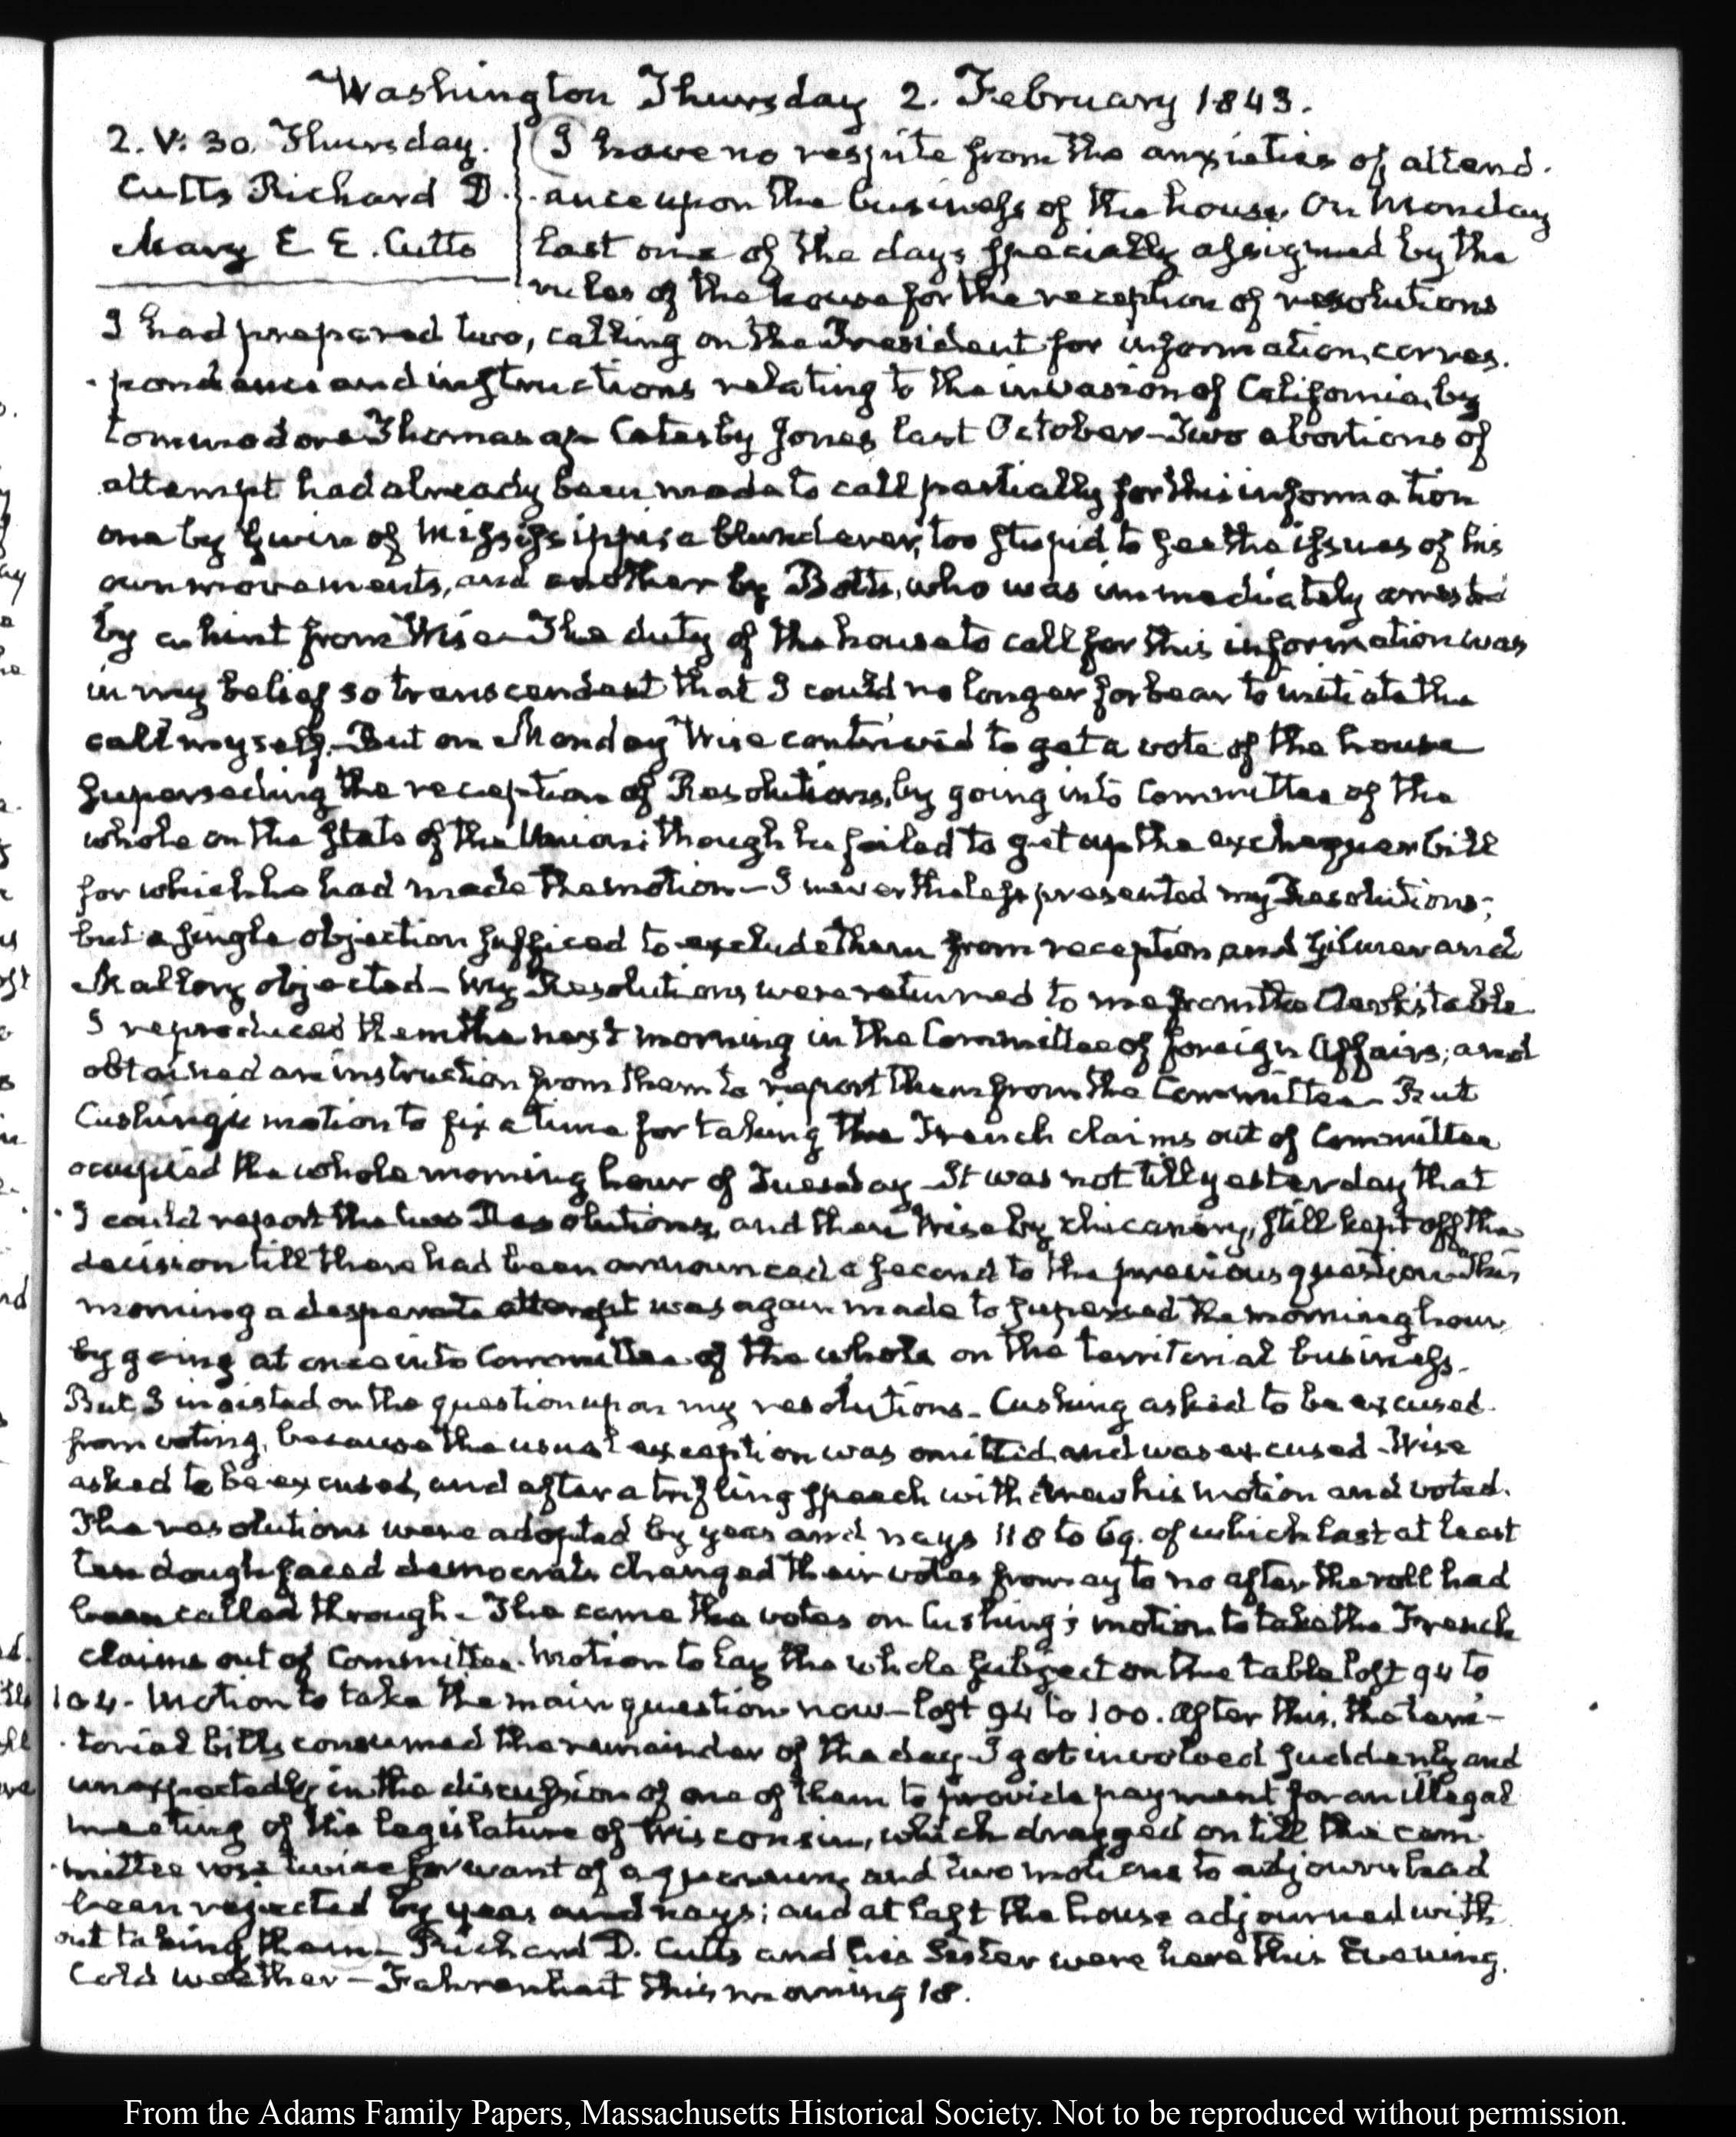 Washington Thursday 2. February 1843.
2. V: 30. Thursday.
Cutts Richard D.
Mary E E. Cutts
I have no respite from the anxieties of attend-
-ance upon the business of the house. On Monday
last one of the days specially assigned by the
rules of the house for the reception of resolutions
I had prepared two, calling on the President for information, corres-
-pondence and instructions relating to the invasion of California, by
Commodore Thomas ap Catesby Jones last October - Two abortions of
attempt had already been made to call partially for this information
one by Gwin of Mississippi, a blunderer, too stupid to see the issues of his
own movements, and another by Botts, who was immediately arrested
by a hint from Wise - The duty of the house to call for this information was
in my belief so transcendent that I could no longer forbear to initiate the
call myself. But on Monday Wise contrived to get a vote of the house
superseding the reception of Resolutions, by going into Committee of the
whole on the State of the Union: though he failed to get up the exchequer bill
for which he had made the motion - I nevertheless presented my Resolutions;
but a single objection sufficed to exclude them from reception and Gilmer and
Mallory objected - My Resolutions were returned to me from the Clerk's table
I reproduced them the next morning in the Committee of foreign Affairs; and
obtained an instruction from them to report them from the Committee - But
Cushing's motion to fix a time for taking the French claims out of Committee
occupied the whole morning hour of Tuesday - It was not till yesterday that
I could report the two Resolutions, and then Wise by chicanery, still kept off the
decision till there had been announced a second to the previous question - This
morning a desperate attempt was again made to supersed the morning hour
by going at once into Committee of the whole on the territorial business.
But I insisted on the question upon my resolutions - Cushing asked to be excused
from voting, because the usual exception was omitted and was excused - Wise
asked to be excused, and after a trifling speech withdrew his motion and voted.
The resolutions were adopted by yeas and nays 118 to 69. of which last at least
ten dough faced democrats changed their votes from ay to no after the roll had
been called through - The came the votes on Cushing's motion to take the French
claims out of Committee. Motion to lay the whole subject on the table lost 94 to
104 - Motion to take the main question now - lost 94 to 100. After this, the terri-
-torial bills consumed the remainder of the day - I got involved suddenly and
unexpectedly in the discussion of one of them to provide payment for an illegal
meeting of the legislature of Wisconsin, which dragged on till the com-
-mittee rose twice for want of a quorum, and two motions to adjourn had
been rejected by yeas and nays; and at last the house adjourned with
out taking them - Richard D. Cutts and his Sister were here this Evening.
Cold weather - Fahrenheit this morning 18.
From the Adams Family Papers, Massachusetts Historical Society. Not to be reproduced without permission.